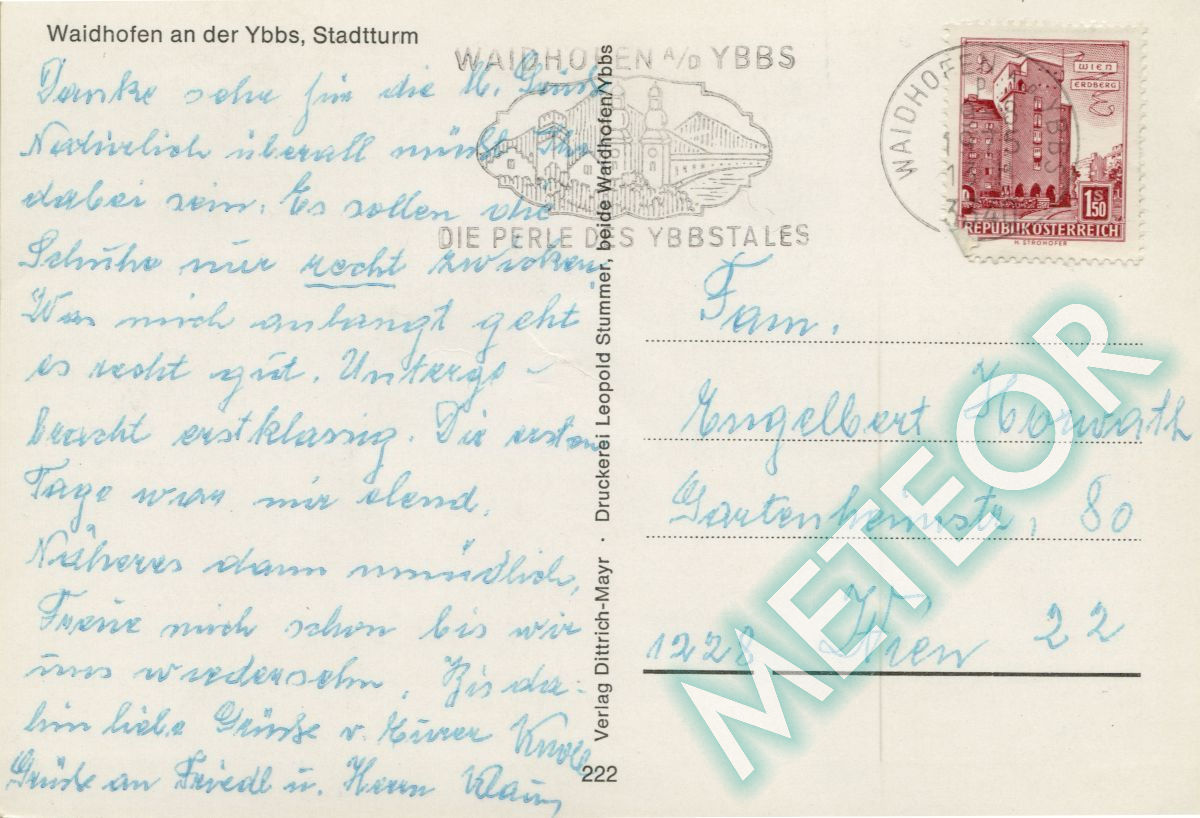 Waidhofen an der Ybbs, Stadtturm
Danke sehr für die
Natürlich überall müßt Ihr
dabei sein. Es sollen die
Schuhe nur recht zwicken.
Was mich anlangt geht
es recht gut. Unterge-
bracht erstklassig. Die ersten
Tage war mir elend.
Näheres dann mündlich,
Freue mich schon bis wir
uns wiedersehn. Bis da-
hin liebe Grüße v. Eurer
Grüße an Friedl u. Herrn
WAIDHOFEN A/D YBBS
DIE PERLE DES YBBSTALES
Verlag Dittrich-Mayr · Druckerei Leopold Stummer, beide Waidhofen/Ybbs
222
WAIDHOFEN YBBS
WIEN
ERDBERG
1S50
REPUBLIK ÖSTERREICH
H. STROHOFER
Fam.
Engelbert Horwath
Gartenheimstr. 80
1228 Wien 22
METEOR